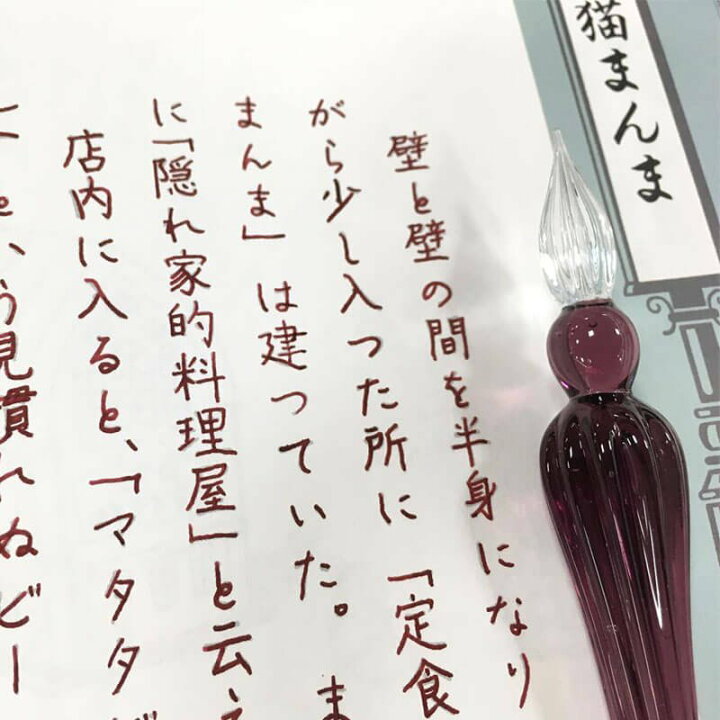 猫まんま
壁と壁の間を半身になり
がら少し入った所に「定食
まんま」は建っていた。ま
に「隠れ家的料理屋」と云え
店内に入ると、「マタタビ
と、う見慣れぬビー